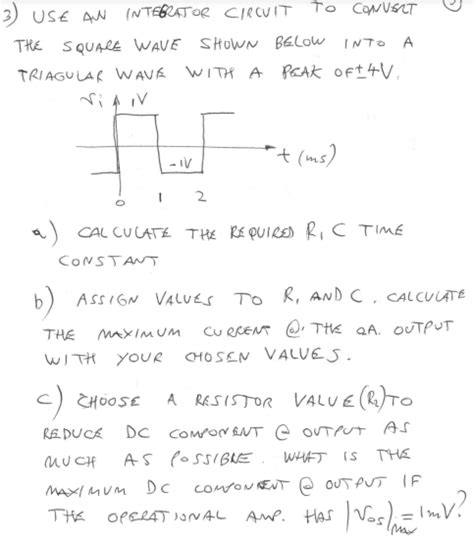 3) USE AN INTEGRATOR CIRCUIT TO CONVERT
THE SQUARE WAVE SHOWN BELOW INTO A
TRIAGULAR WAVE WITH A PEAK OF ±4V.
Vi 1V
-1V
t (ms)
0 1 2
a) CALCULATE THE REQUIRED R, C TIME
CONSTANT
b) ASSIGN VALUES TO R, AND C. CALCULATE
THE MAXIMUM CURRENT @ THE OA. OUTPUT
WITH YOUR CHOSEN VALUES.
c) CHOOSE A RESISTOR VALUE (R2) TO
REDUCE DC COMPONENT @ OUTPUT AS
MUCH AS POSSIBLE. WHAT IS THE
MAXIMUM DC COMPONENT @ OUTPUT IF
THE OPERATIONAL AMP. HAS |Vos|max = 1mV?